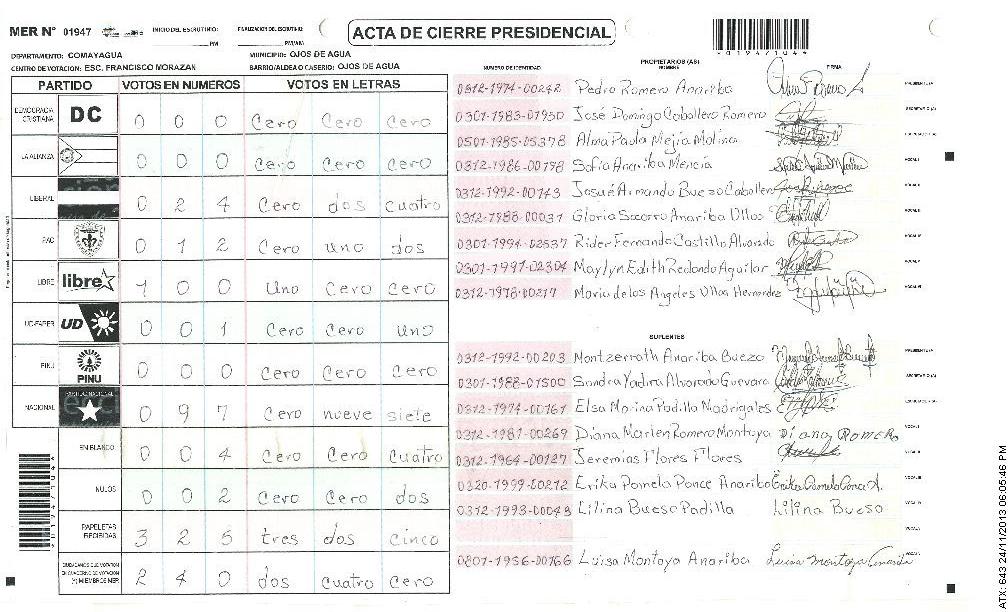 MER Nº 01947
INICIO DEL ESCRUTINIO: PM
FINALIZACION DEL ESCRUTINIO: PM/AM
ACTA DE CIERRE PRESIDENCIAL
01947/1044
DEPARTAMENTO: COMAYAGUA
MUNICIPIO: OJOS DE AGUA
CENTRO DE VOTACION: ESC. FRANCISCO MORAZAN
BARRIO/ALDEA O CASERIO: OJOS DE AGUA
PARTIDO VOTOS EN NUMEROS VOTOS EN LETRAS
DEMOCRACIA CRISTIANA DC 0 0 0 Cero Cero Cero
LA ALIANZA 0 0 0 Cero Cero Cero
LIBERAL 0 2 4 Cero dos cuatro
PAC 0 1 2 Cero uno dos
LIBRE libre 1 0 0 Uno Cero Cero
UD-FAPER UD 0 0 1 Cero Cero uno
PINU PINU 0 0 0 Cero Cero Cero
NACIONAL 0 9 7 Cero nueve siete
EN BLANCO 0 0 4 Cero Cero cuatro
NULOS 0 0 2 Cero Cero dos
PAPELETAS RECIBIDAS 3 2 5 tres dos cinco
CIUDADANOS QUE VOTARON EN CUADERNO DE VOTACION (+) MIEMBROS MER 2 4 0 dos cuatro cero
NUMERO DE IDENTIDAD PROPIETARIOS (AS) NOMBRE FIRMA
0312-1974-00242 Pedro Romero Anariba PRESIDENTE/A
0301-1983-01950 José Domingo Caballero Romero SECRETARIO (A)
0501-1985-05378 Alma Paola Mejía Molina
0312-1986-00198 Sofía Anariba Mencía VOCAL I
0312-1992-00143 Josué Armando Buezo Caballero
0312-1988-00031 Gloria Socorro Anariba Ulloa
0301-1994-02537 Rider Fernando Castillo Alvarado
0301-1991-02304 Maylyn Edith Redondo Aguilar
0312-1978-00217 Maria de los Angeles Ulloa Hernandez
SUPLENTES
0312-1992-00203 Montzerrath Anariba Buezo PRESIDENTE/A
0301-1988-01500 Sandra Yadira Alvarado Guevara SECRETARIO (A)
0312-1974-00161 Elsa Marina Padilla Madrigales
0312-1981-00269 Diana Marlen Romero Montoya Diana ROMERO
0312-1964-00127 Jeremias Flores Flores
0320-1999-00212 Erika Pamela Ponce Anariba Erika Pamela Ponce A.
0312-1993-00043 Lilina Bueso Padilla Lilina Bueso
0801-1956-00766 Luisa Montoya Anariba Luisa montoya Anariba
ATX: 643 24/11/2013 06:05:46 PM